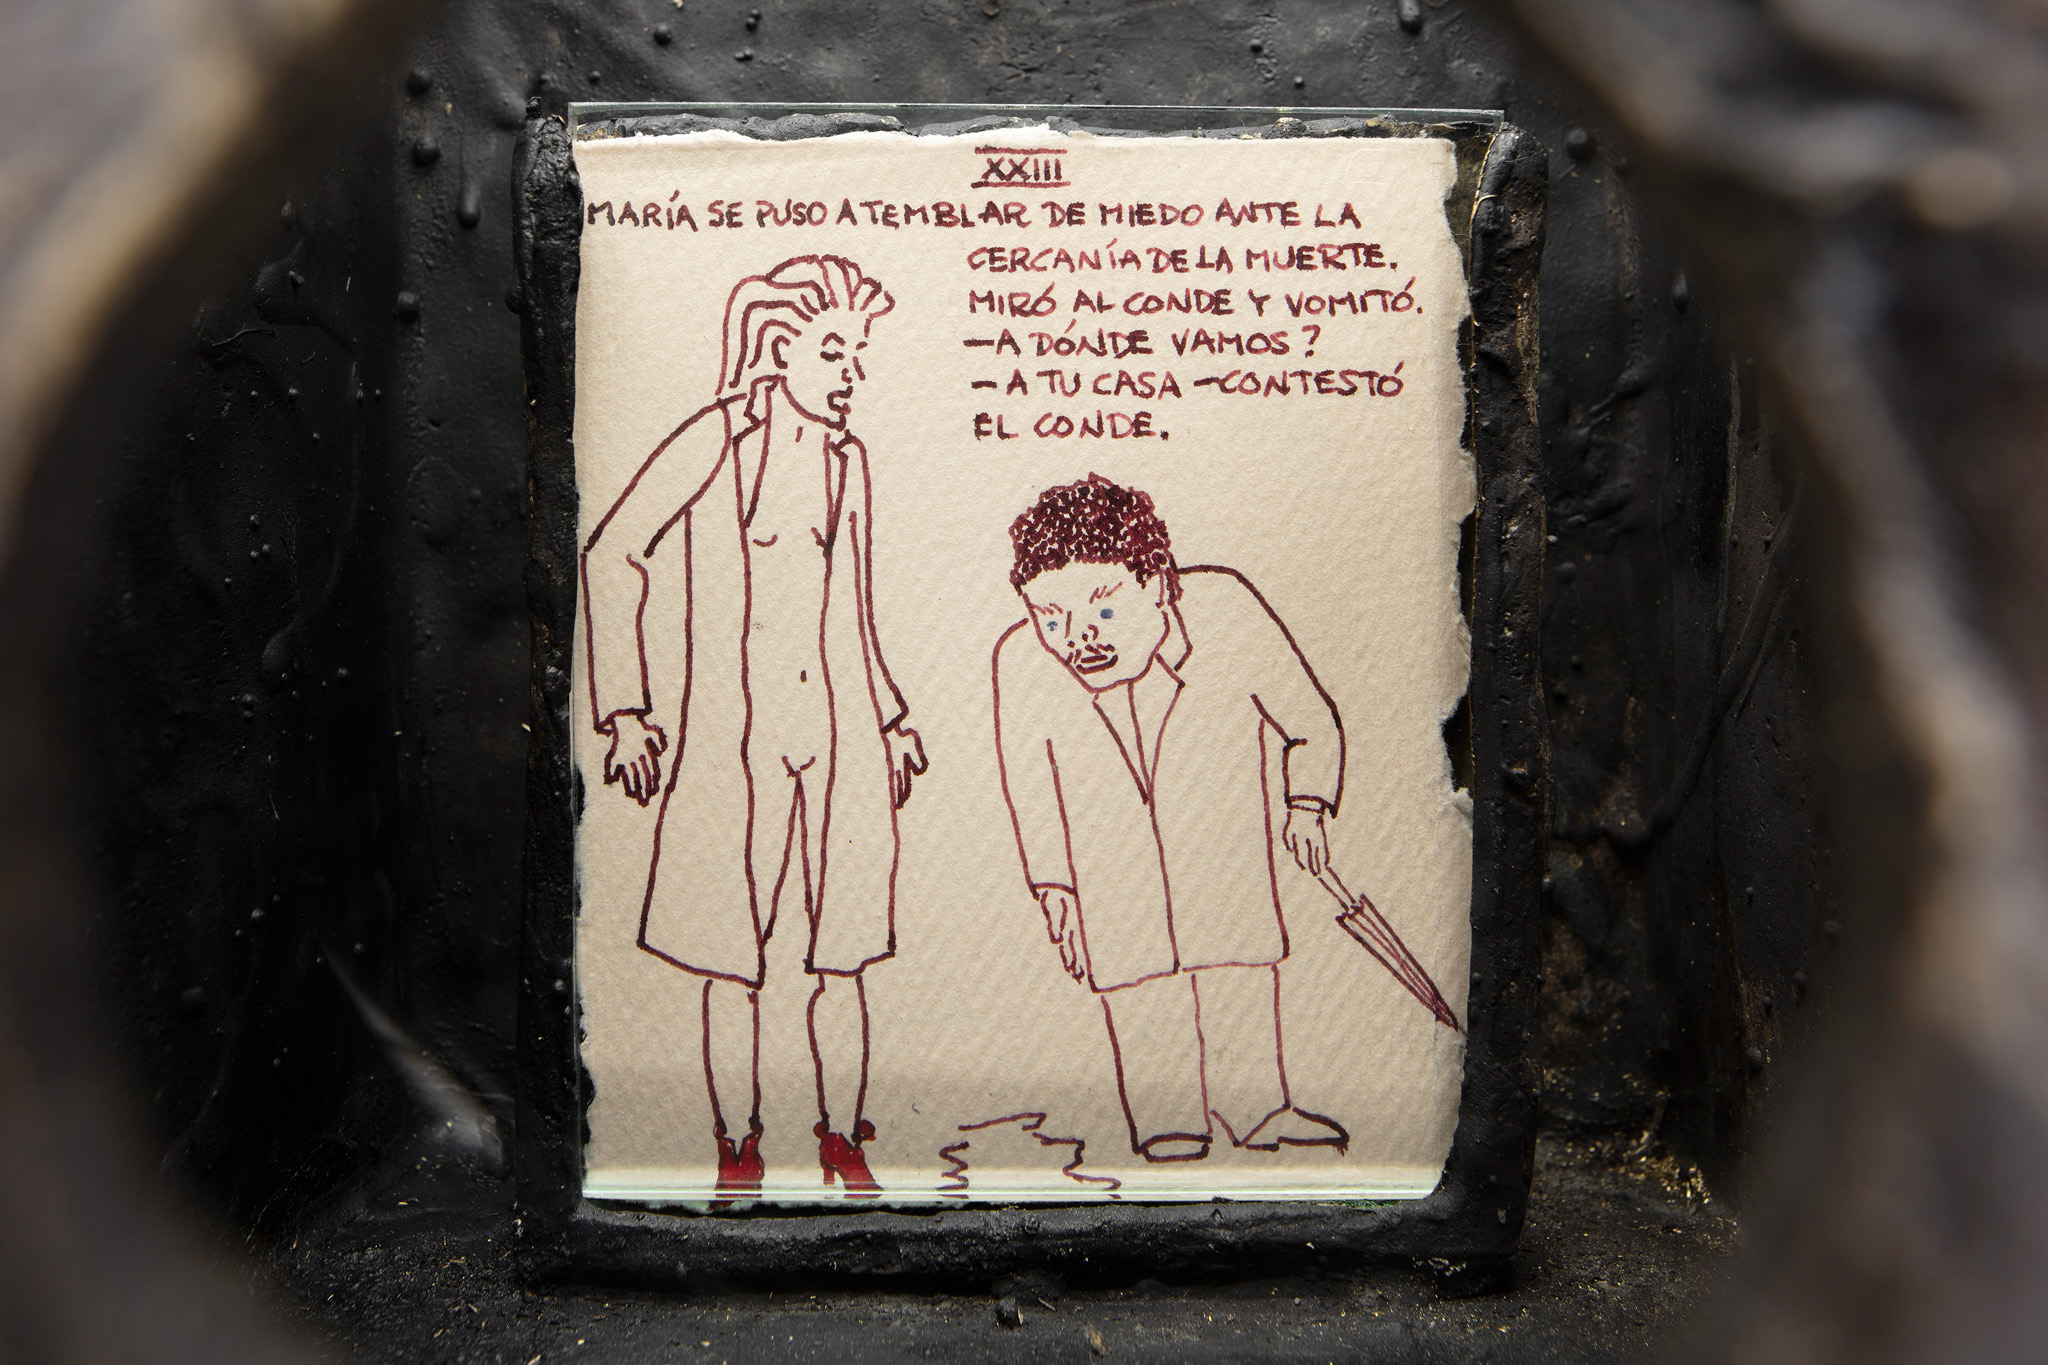 XXIII
MARÍA SE PUSO A TEMBLAR DE MIEDO ANTE LA
CERCANÍA DE LA MUERTE.
MIRÓ AL CONDE Y VOMITÓ.
—A DÓNDE VAMOS?
—A TU CASA —CONTESTÓ
EL CONDE.